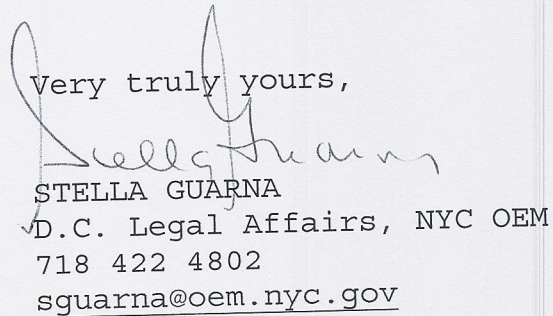 Very truly yours,
Stella Guarna
STELLA GUARNA
D.C. Legal Affairs, NYC OEM
718 422 4802
sguarna@oem.nyc.gov